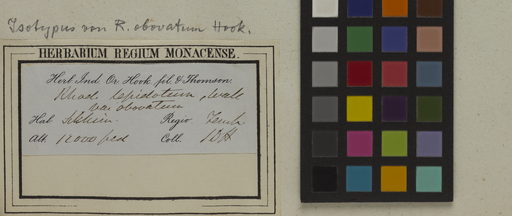 Isotypus von R. obovatum Hook.
HERBARIUM REGIUM MONACENSE.
Herb. Ind. Or. Hook. fil. & Thomson.
Rhod. lepidotum, Wall.
var. obovatum
Hab. Sikkim. Regio Temp.
Alt. 12000 ped Coll. JDH